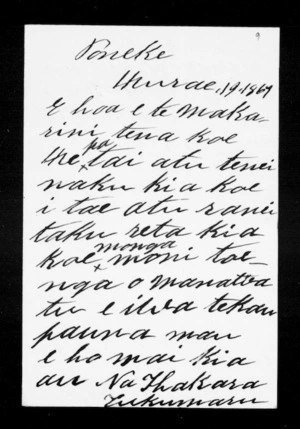 9
Poneke
Hurae, 19. 1869
E hoa e te Maka-
rini tena koe
He pa tai atu tenei
naku kia koe
i tae atu ranei
taku reta kia
koe monga moni toe-
nga o manatva
tu e ilva tekau
pauna mau
e ho mai kia
au Na Ihakara
Tukumaru